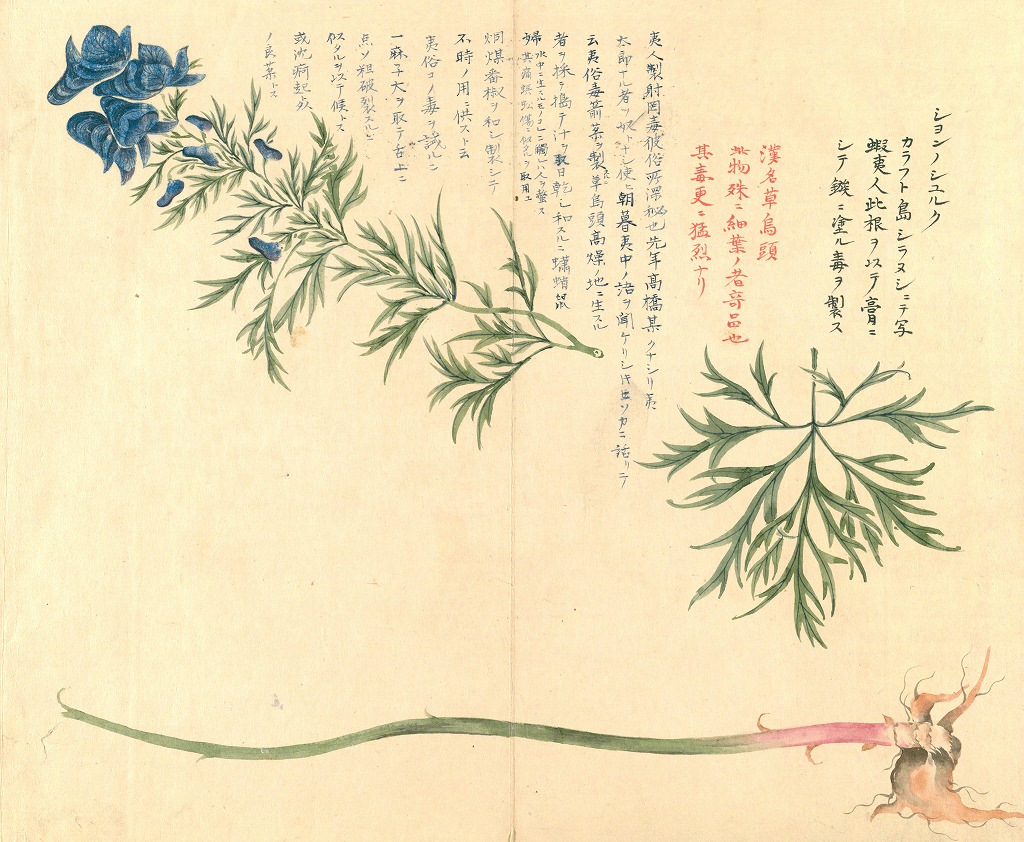 ションノシユルク
カラフト島シラヌシニテ写
蝦夷人此根ヲ以テ膏ニ
シテ鏃ニ塗ル毒ヲ製ス
漢名草烏頭
此物殊ニ細葉ノ者奇品也
其毒更ニ猛烈ナリ
夷人製射罔毒彼俗所深秘也先年高橋某クナシリ夷
太郎ナル者ヲ ナシ使ヒ朝暮夷中ノ諸ヲ聞ケリシ ソカニ話リテ
云夷俗毒箭薬ヲ製スルニ草烏頭高燥ノ地ニ生スル
者ヲ採テ搗テ汁ヲ取日乾シ和スルニ蠨蛸鼠
婦水中ニ生スルモノコレニ觸レハ人ヲ螫ス
其痛蜈蚣傷ニ似タルヲ取用ユ
烟煤番椒ヲ和シ製シテ
不時ノ用ニ供スト云
夷俗コノ毒ヲ試ルニ
一麻子大ヲ取テ舌上ニ
点ソ粗破裂スルニ
似タルヲ以テ候トス
或沈痾起
ノ良薬トス